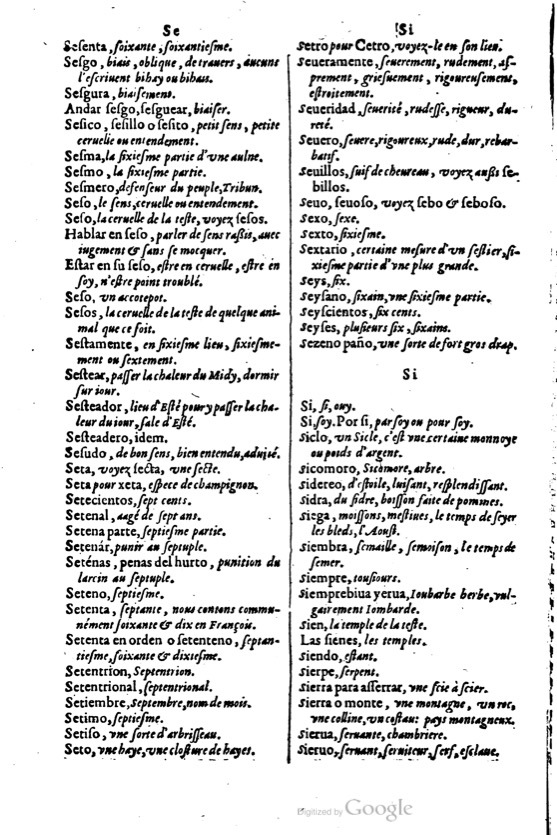 Se
Sesenta, soixante, soixantiesme.
Sesgo, biais, oblique, de trauers, aucuns
l'escriuent bihay ou bihais.
Sesgura, biaisement.
Andar sesgo, sesguear, biaiser.
Sesico, sesillo o sesito, petit sens, petite
ceruelle ou entendement.
Sesma, la sixiesme partie d'vne aulne.
Sesmo, la sixiesme partie.
Sesmero, defenseur du peuple, Tribun.
Seso, le sens, ceruelle ou entendement.
Seso, la ceruelle de la teste, voyez sesos.
Hablar en seso, parler de sens rassis, auec
iugement & sans se mocquer.
Estar en su seso, estre en ceruelle, estre en
soy, n'estre point troublé.
Seso, vn accotepot.
Sesos, la ceruelle de la teste de quelque ani-
mal que ce soit.
Sestamente, en sixiesme lieu, sixiesme-
ment ou sextement.
Sestear, passer la chaleur du Midy, dormir
sur iour.
Sesteador, lieu d'Esté pour y passer la cha-
leur du iour, sale d'Esté.
Sesteadero, idem.
Sesudo, de bon sens, bien entendu, aduisé.
Seta, voyez secta, vne secte.
Seta pour xeta, espece de champignon.
Setecientos, sept cents.
Setenal, aagé de sept ans.
Setena parte, septiesme partie.
Setenár, punir au septuple.
Seténas, penas del hurto, punition du
larcin au septuple.
Seteno, septiesme.
Setenta, septante, nous contons commu-
nément soixante & dix en François.
Setenta en orden o setenteno, septan-
tiesme, soixante & dixiesme.
Setentrion, Septentrion.
Setentrional, septentrional.
Setiembre, Septembre, nom de mois.
Setimo, septiesme.
Setiso, vne sorte d'arbrisseau.
Seto, vne haye, vne closture de hayes.
Si
Setro pour Cetro, voyez-le en son lieu.
Seueramente, seuerement, rudement, as-
prement, griefuement, rigoureusement,
estroitement.
Seueridad, seuerité, rudesse, rigueur, du-
reté.
Seuero, seuere, rigoureux, rude, dur, rebar-
batif.
Seuillos, suif de cheureau, voyez aussi se-
billos.
Seuo, seuoso, voyez sebo & seboso.
Sexo, sexe.
Sexto, sixiesme.
Sextario, certaine mesure d'vn sestier, si-
xiesme partie d'vne plus grande.
Seys, six.
Seysano, sixain, vne sixiesme partie.
Seyscientos, six cents.
Seyses, plusieurs six, sixains.
Sezeno paño, vne sorte de fort gros drap.
Si
Si, si, ouy.
Si, soy. Por si, par soy ou pour soy.
Siclo, vn Sicle, c'est vne certaine monnoye
ou poids d'argent.
sicomoro, Sicomore, arbre.
sidereo, d'estoile, luisant, resplendissant.
sidra, du sidre, boisson faite de pommes.
siega, moissons, mestiues, le temps de seyer
les bleds, l'Aoust.
siembra, semaille, semoison, le temps de
semer.
siempre, tousiours.
siemprebiua yerua, Ioubarbe herbe, vul-
gairement Iombarde.
sien, la temple de la teste.
Las sienes, les temples.
siendo, estant.
sierpe, serpent.
sierra para asserrar, vne scie à scier.
sierra o monte, vne montagne, vn roc,
vne colline, vn costau: pays montagneux.
sierua, seruante, chambriere.
sieruo, seruant, seruiteur, serf, esclaue.
Digitized by Google